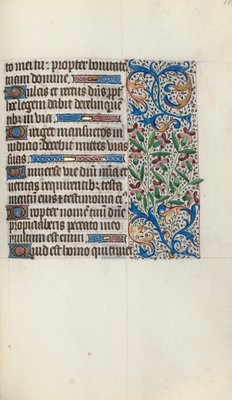 to mei tu: propter bonitatē
tuam domine.
Dulcis et rectus dn̄s ꝓpt
hec legem dabit delinquē
tib; in via.
Diriget mansuetos in
iudicio docebit mites vias
suas
Universe vie dn̄i mīa et
veritas requirentib; testa
mentū eius et testimonia eiꝰ
Propter nomē tuū dn̄e
propiciaberis peccato meo
multum est enim
Quis est homo qui timet